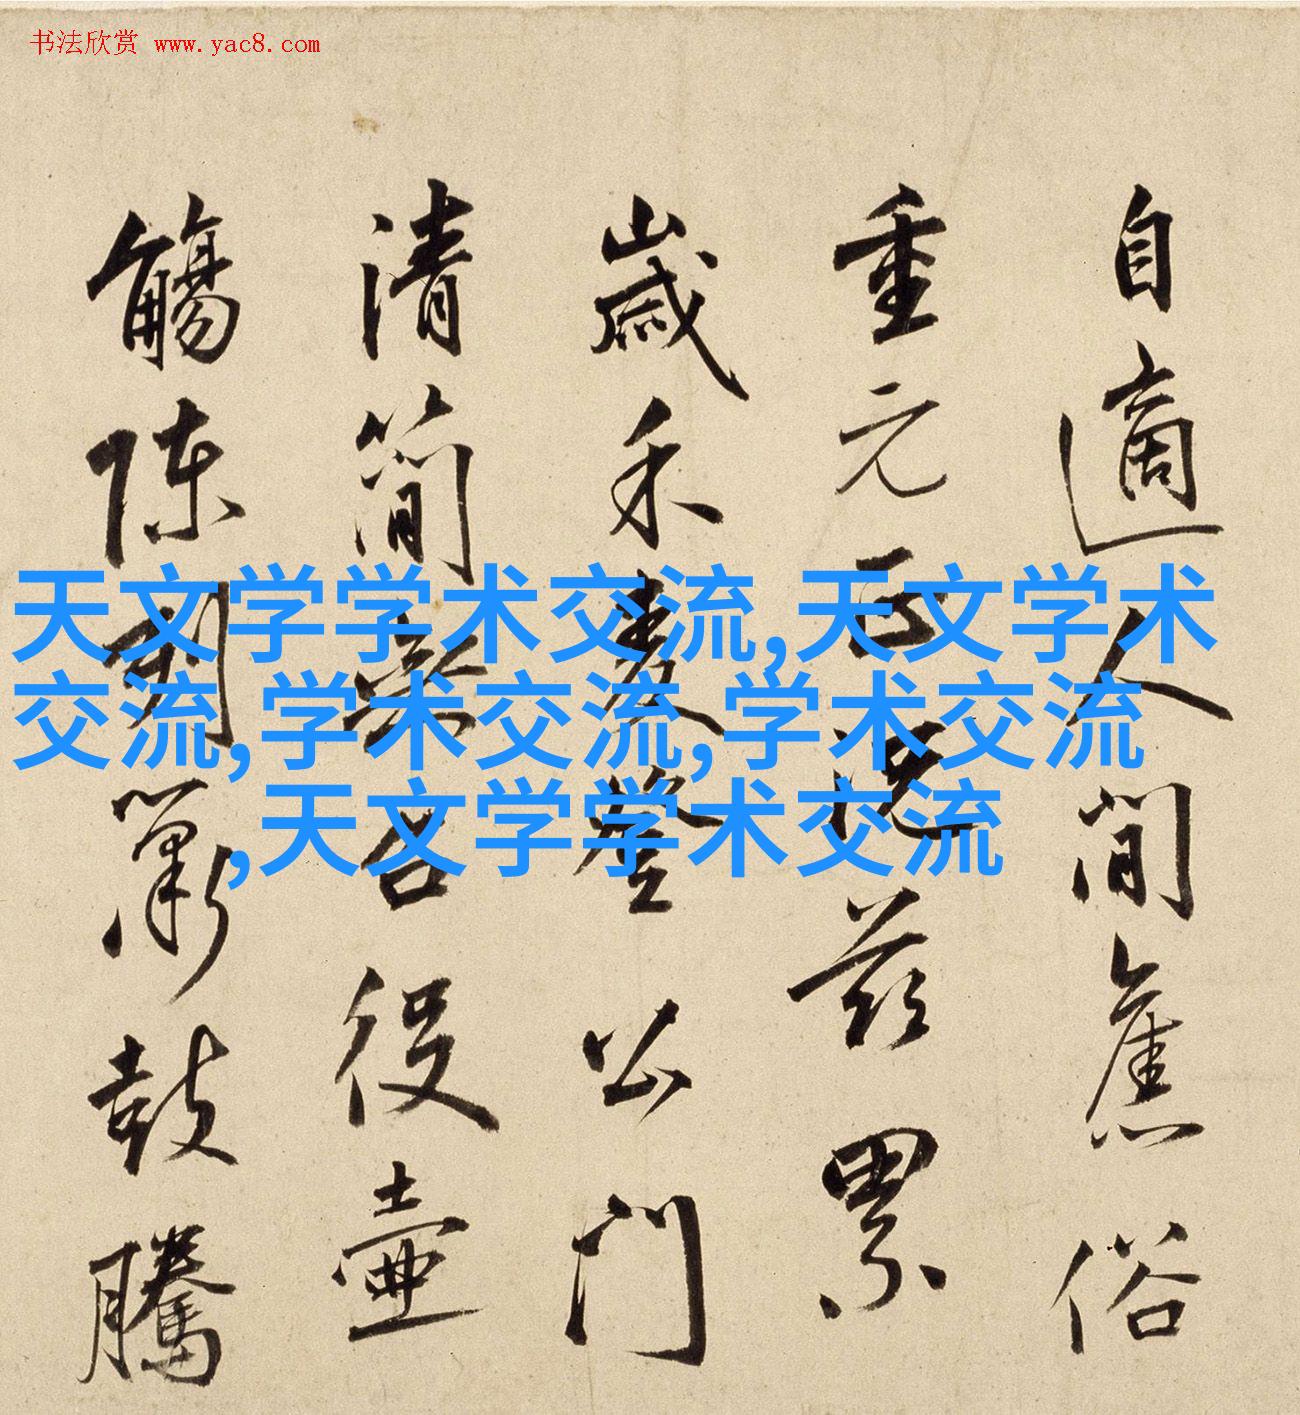 书法欣赏 www.yac8.com
自適人間舊俗
重元正況茲累
歲禾麥登公門
清簡役壺
觴陳簫鼓騰
天文学学术交流,天文学术
交流,学术交流,学术交流
,天文学学术交流